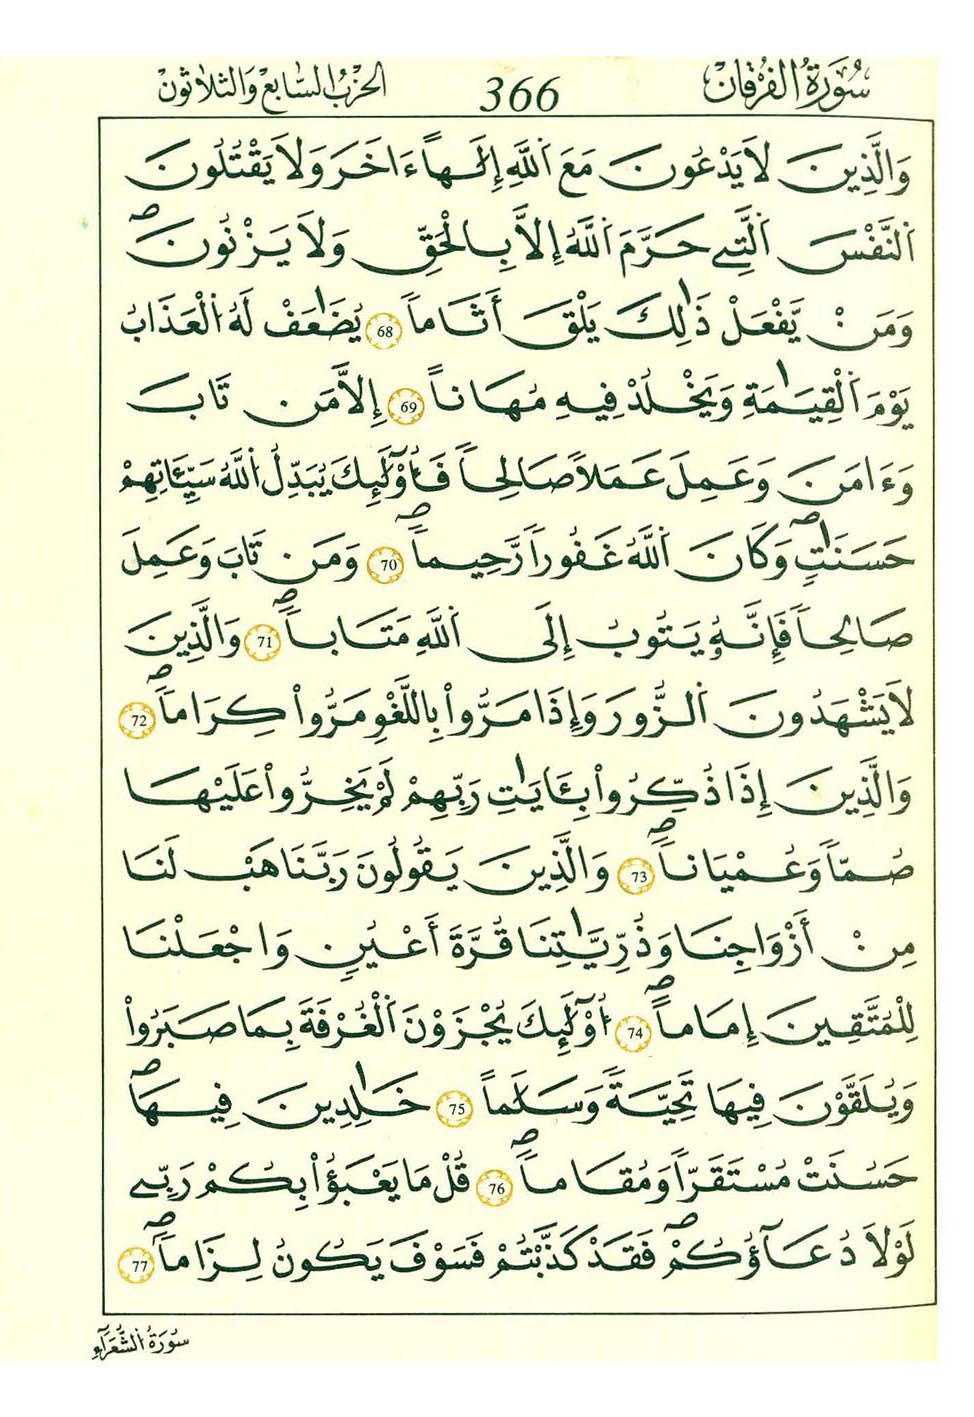 سُورَةُ الفُرْقَان 366 الحِزْبُ السَّابِعُ وَالثَّلَاثُونَ
وَالَّذِينَ لَا يَدْعُونَ مَعَ اَ۬للَّهِ إِلَٰهاً ءَاخَرَ وَلَا يَقْتُلُونَ
اَ۬لنَّفْسَ اَ۬لتِے حَرَّمَ اَ۬للَّهُ إِلَّا بِالْحَقِّ وَلَا يَزْنُونَۖ
وَمَنْ يَّفْعَلْ ذَٰلِكَ يَلْقَ أَثَاماً 68 يُضَٰعَفْ لَهُ اُ۬لْعَذَابُ
يَوْمَ اَ۬لْقِيَٰمَةِ وَيَخْلُدْ فِيهِ مُهَاناً 69 إِلَّا مَن تَابَ
وَءَامَنَ وَعَمِلَ عَمَلاً صَالِحاً فَأُوْلَٰٓئِكَ يُبَدِّلُ اُ۬للَّهُ سَيِّـَٔاتِهِمْ
حَسَنَٰتٍۖ وَكَانَ اَ۬للَّهُ غَفُوراً رَّحِيماًۖ 70 وَمَن تَابَ وَعَمِلَ
صَالِحاً فَإِنَّهُۥ يَتُوبُ إِلَى اَ۬للَّهِ مَتَاباًۖ 71 وَالَّذِينَ
لَا يَشْهَدُونَ اَ۬لزُّورَ وَإِذَا مَرُّواْ بِاللَّغْوِ مَرُّواْ كِرَاماًۖ 72
وَالَّذِينَ إِذَا ذُكِّرُواْ بِـَٔايَٰتِ رَبِّهِمْ لَمْ يَخِرُّواْ عَلَيْهَا
صُمّاً وَعُمْيَاناًۖ 73 وَالَّذِينَ يَقُولُونَ رَبَّنَا هَبْ لَنَا
مِنْ أَزْوَاجِنَا وَذُرِّيَّٰتِنَا قُرَّةَ أَعْيُنٍ وَاجْعَلْنَا
لِلْمُتَّقِينَ إِمَاماًۖ 74 أُوْلَٰٓئِكَ يُجْزَوْنَ اَ۬لْغُرْفَةَ بِمَا صَبَرُواْ
وَيُلَقَّوْنَ فِيهَا تَحِيَّةً وَسَلَٰماً 75 خَٰلِدِينَ فِيهَاۖ
حَسُنَتْ مُسْتَقَرّاً وَمُقَاماًۖ 76 قُلْ مَا يَعْبَؤُاْ بِكُمْ رَبِّے
لَوْلَا دُعَآؤُكُمْۖ فَقَدْ كَذَّبْتُمْ فَسَوْفَ يَكُونُ لِزَاماًۖ 77
سُورَةُ الشُّعَرَآءِ